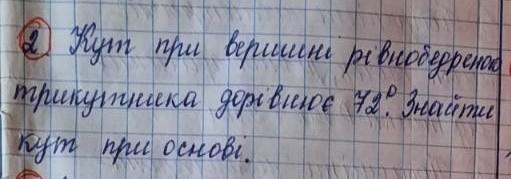 2. Кут при вершині рівнобедреного
трикутника дорівнює 72°. Знайти
кут при основі.